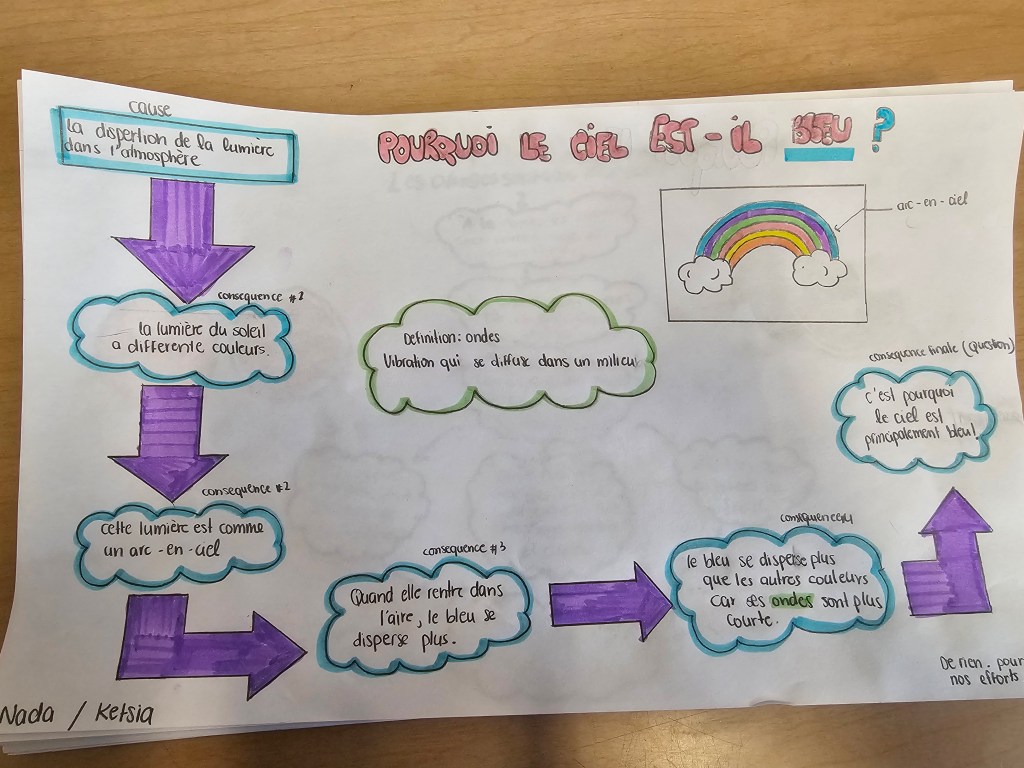 cause
la dispertion de la lumière
dans l'atmosphère
POURQUOI LE CIEL EST-IL BLEU ?
arc-en-ciel
consequence #1
la lumière du soleil
a differente couleurs.
Definition: ondes
Vibration qui se diffuse dans un milieu
consequence finale (question)
c'est pourquoi
le ciel est
principalement bleu!
consequence #2
cette lumière est comme
un arc-en-ciel
consequence #3
Quand elle rentre dans
l'aire, le bleu se
disperse plus.
consequence#4
le bleu se disperse plus
que les autres couleurs
car ses ondes sont plus
courte.
De rien. pour
nos efforts
Nada / Ketsia